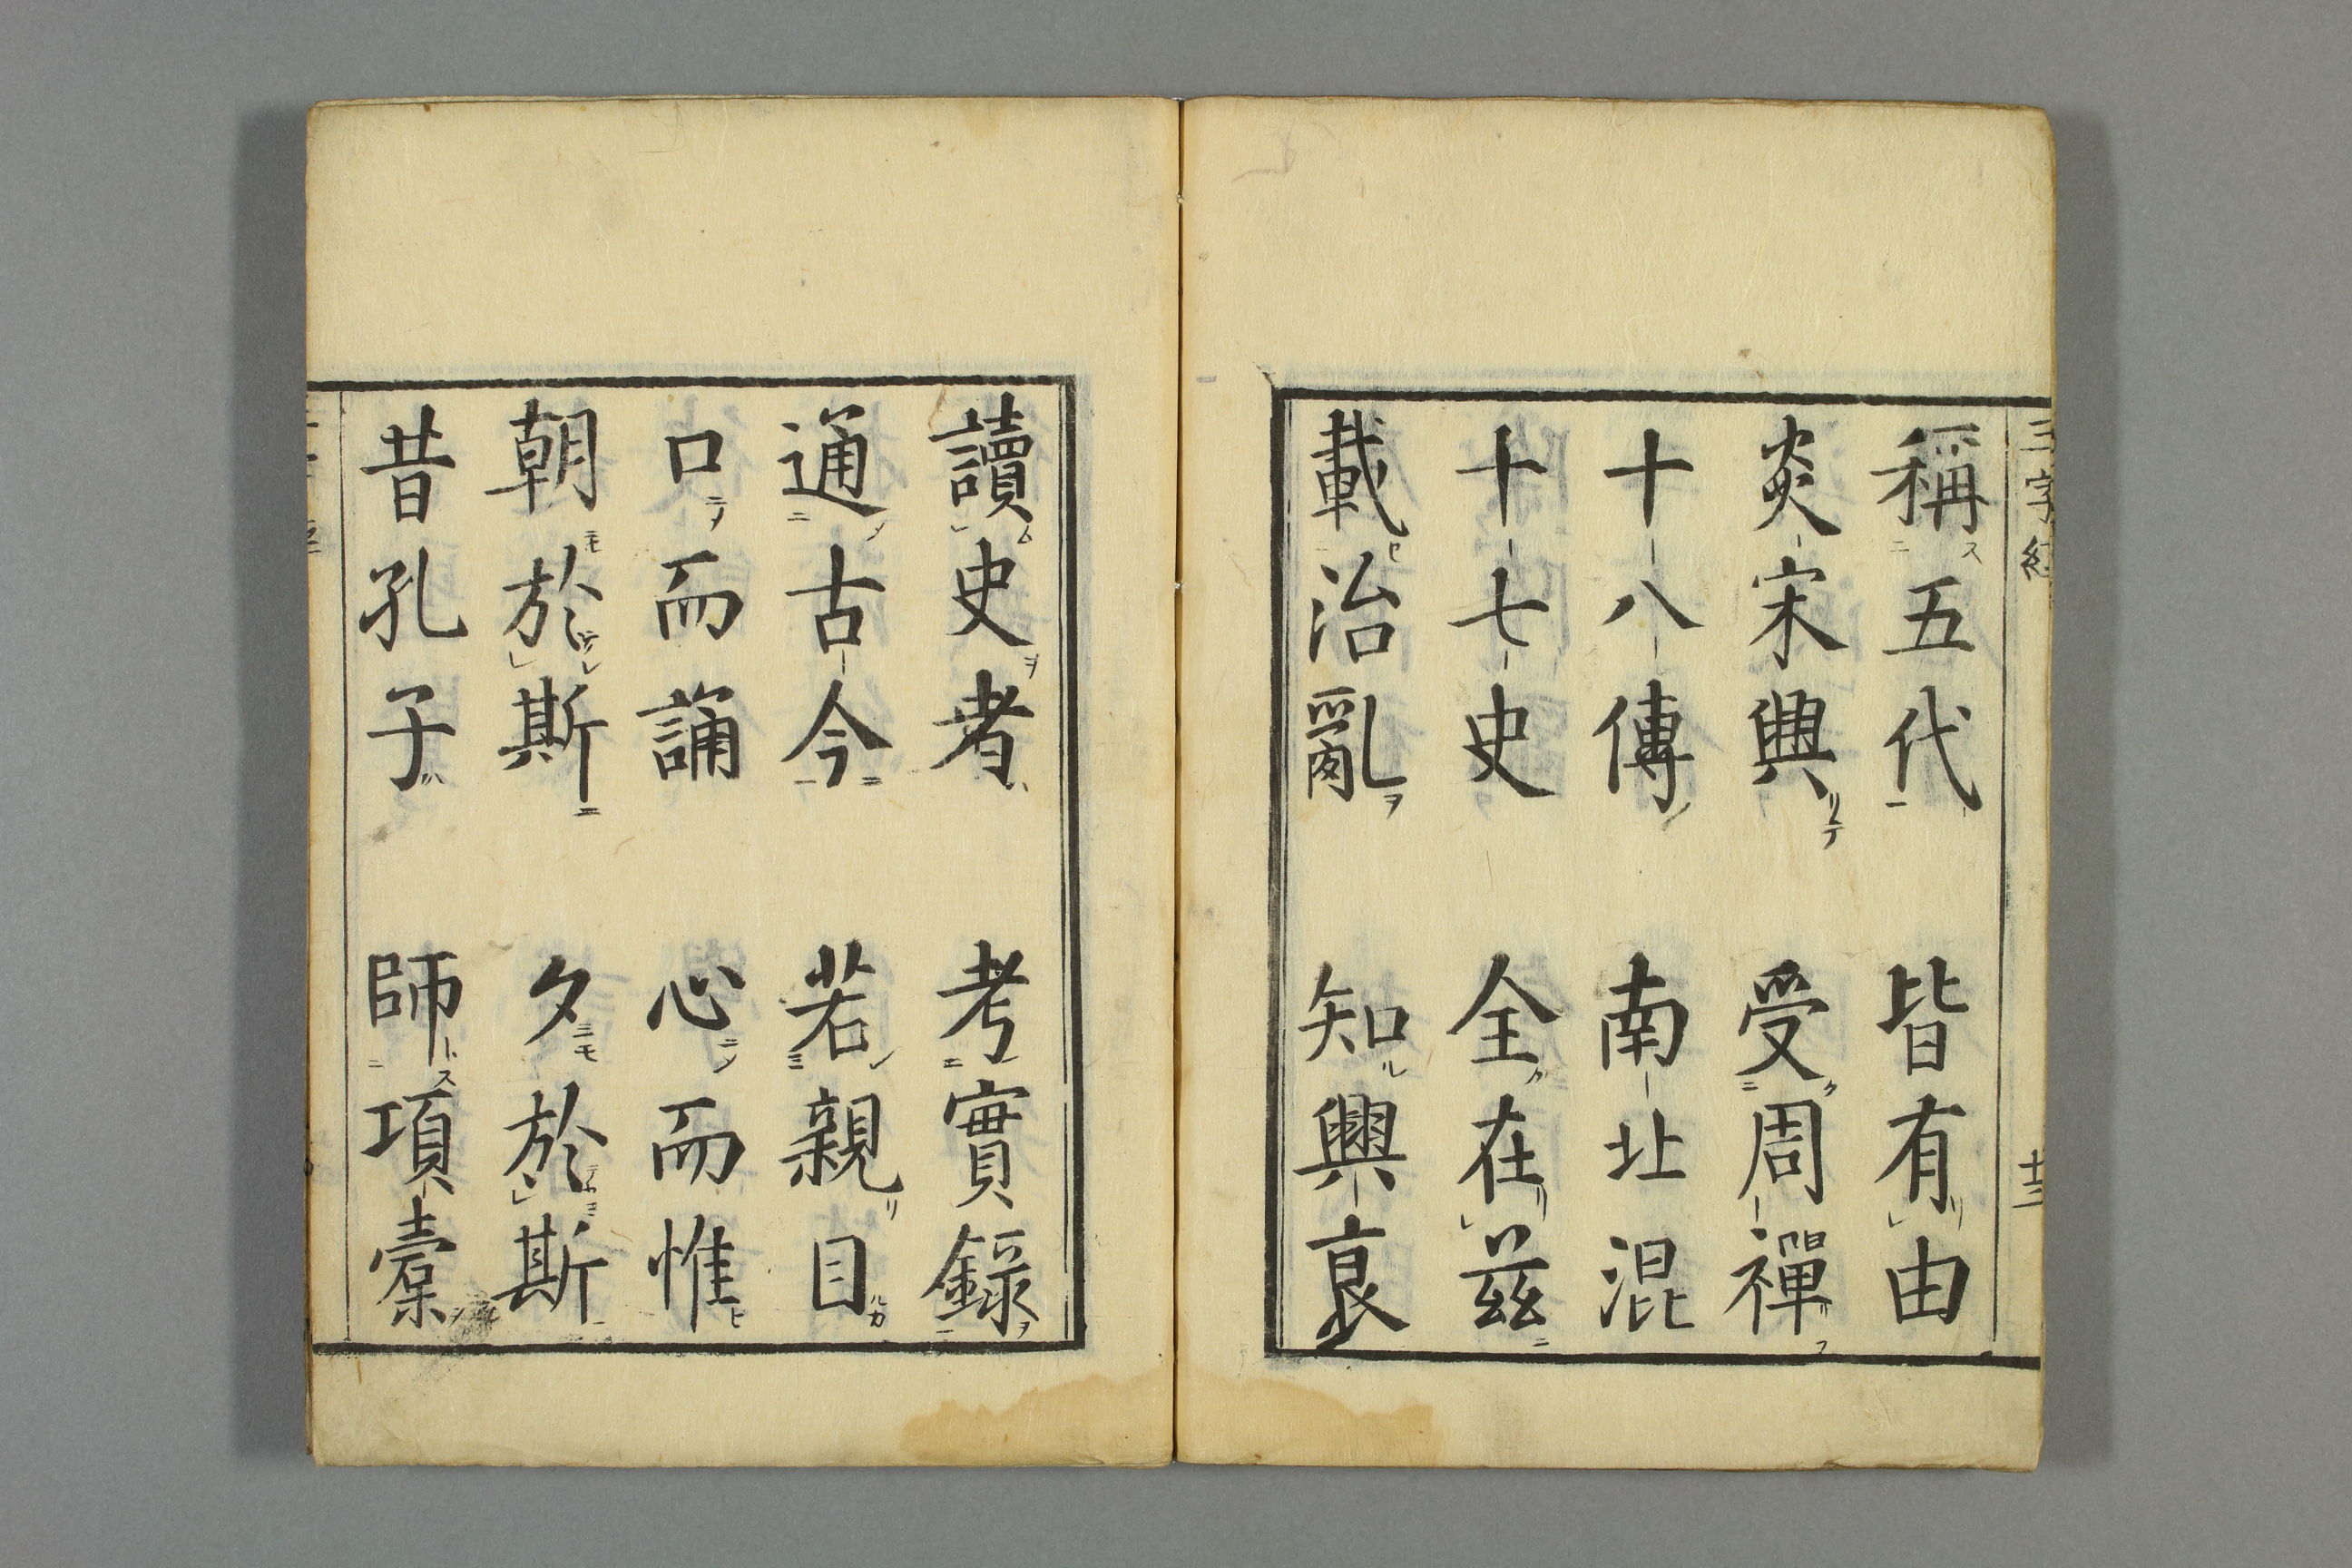 三字經
稱五代 皆有由
炎宋興 受周禪
十八傳 南北混
十七史 全在茲
載治亂 知興衰
十三
讀史者 考實錄
通古今 若親目
口而誦 心而惟
朝於斯 夕於斯
昔孔子 師項橐